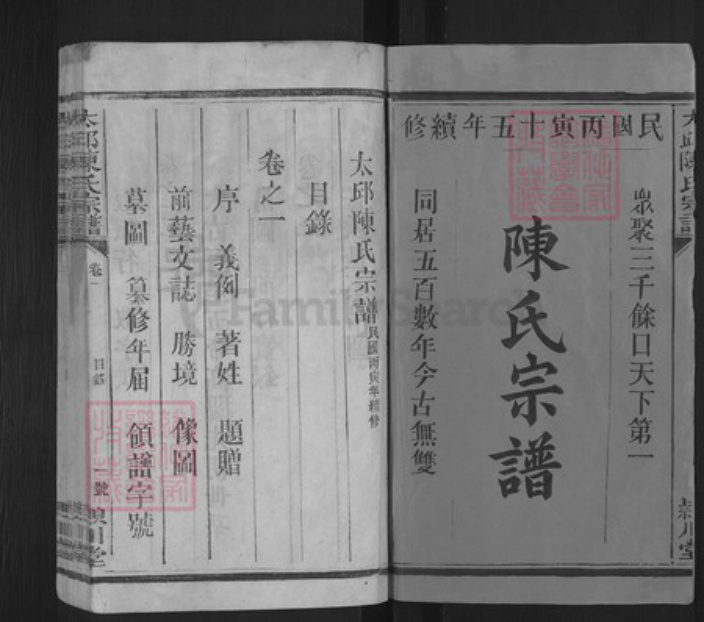 民國丙寅十五年續修
眾聚三千餘口天下第一
陳氏宗譜
同居五百數年今古無雙
太邱陳氏宗譜
民國丙寅年續修
目錄
卷之一
序 義例 著姓 題贈
前藝文誌 勝境 像圖
墓圖 纂修年届 領譜字號
太邱陳氏宗譜
卷一
目錄
一號
潁川堂
FamilySearch